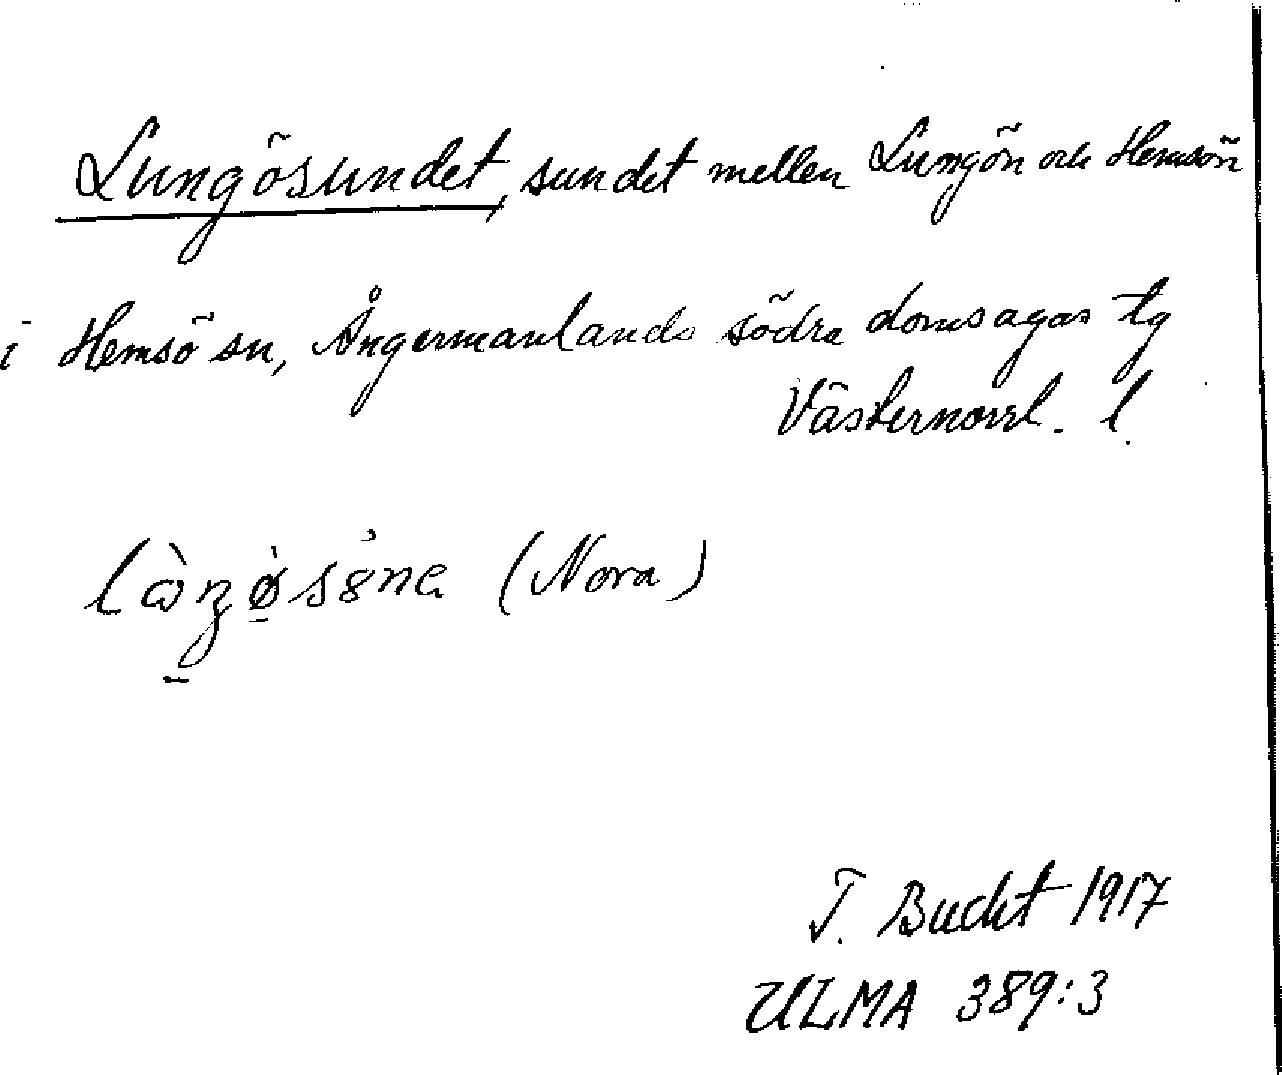 Lungösundet, sundet mellen Lungön och Hemsön
i Hemsö sn, Ångermanlands södra domsagas tg
Västernorrl. l.
(Nora)
T. Bucht 1917
ULMA 389:3